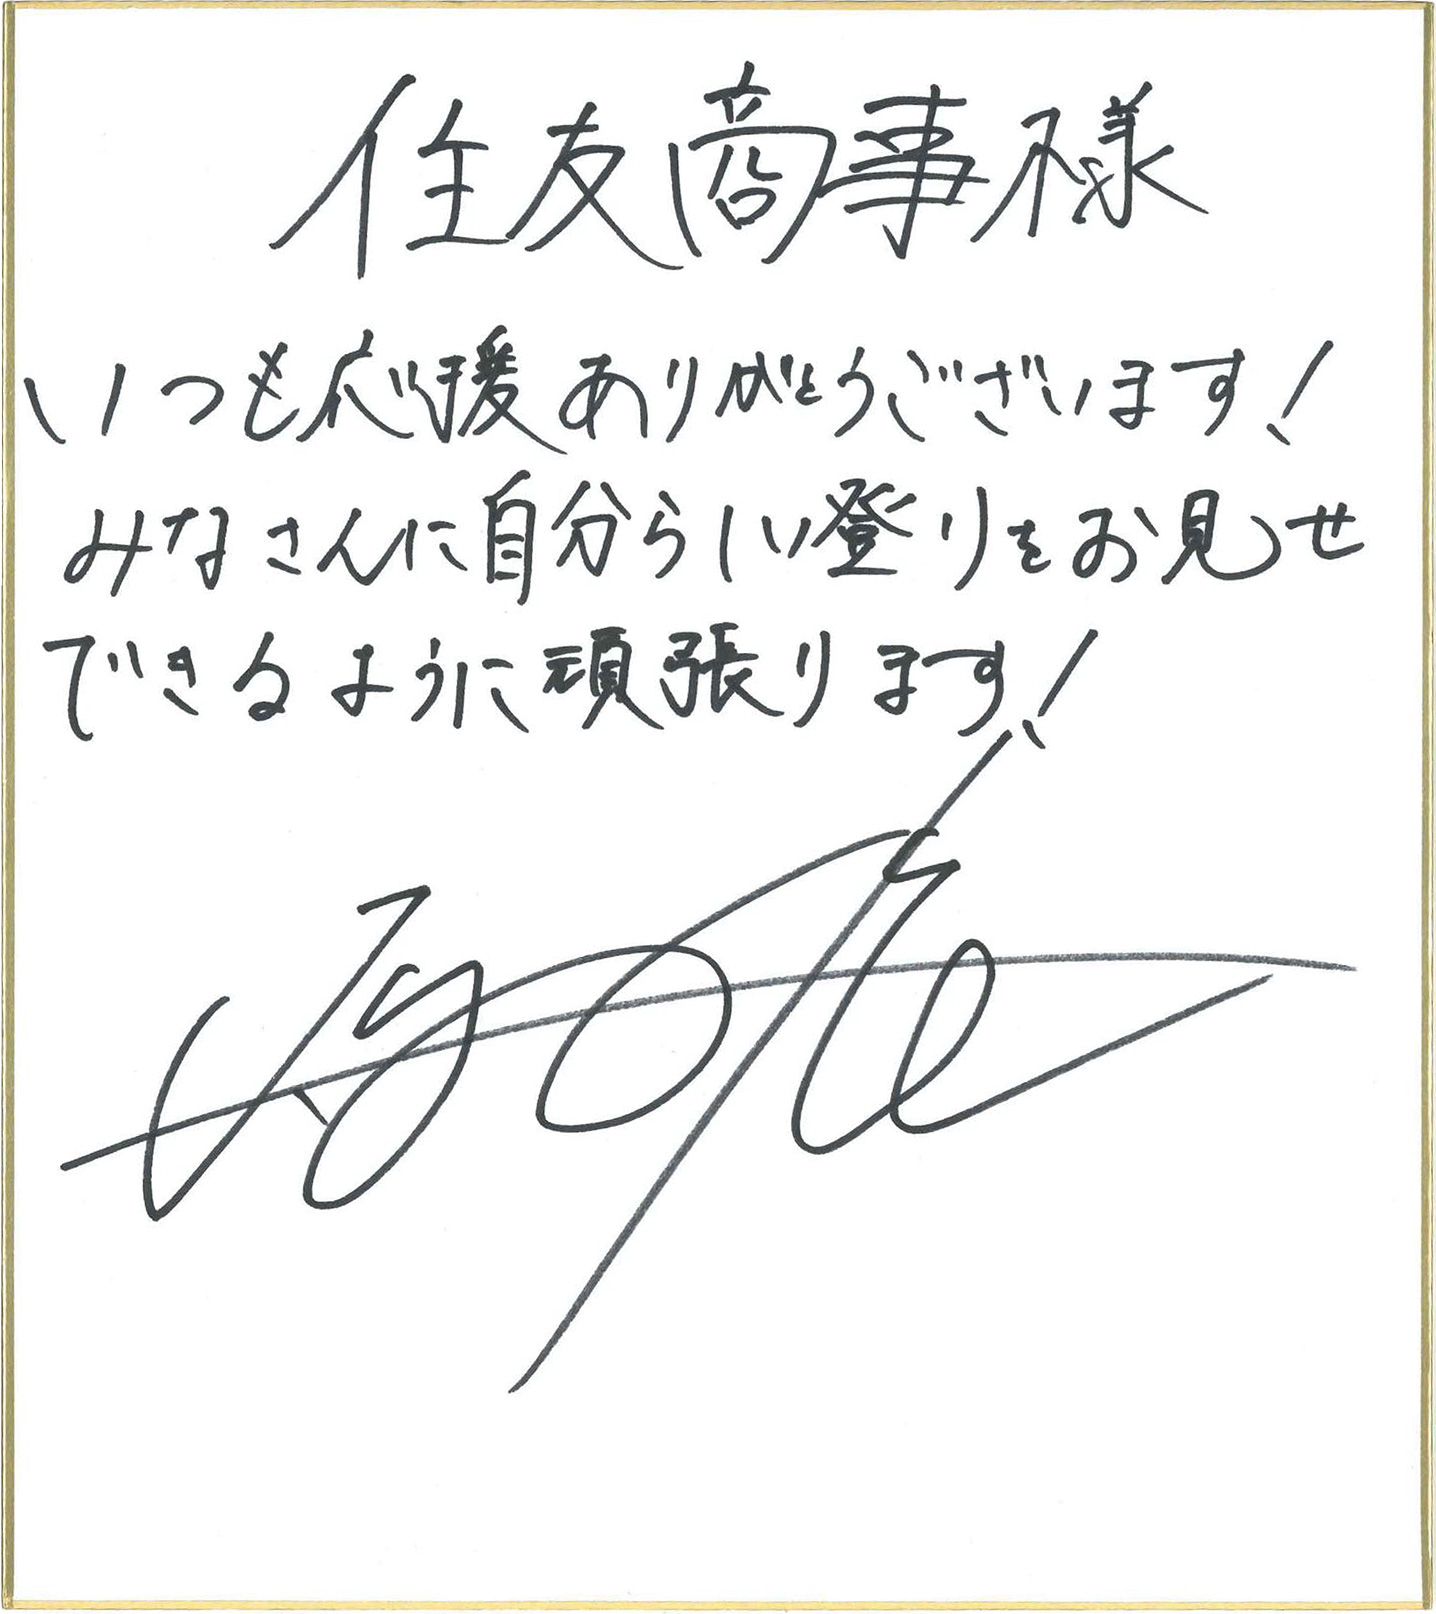 住友商事様
いつも応援ありがとうございます!
みなさんに自分らしい登りをお見せ
できるように頑張ります!